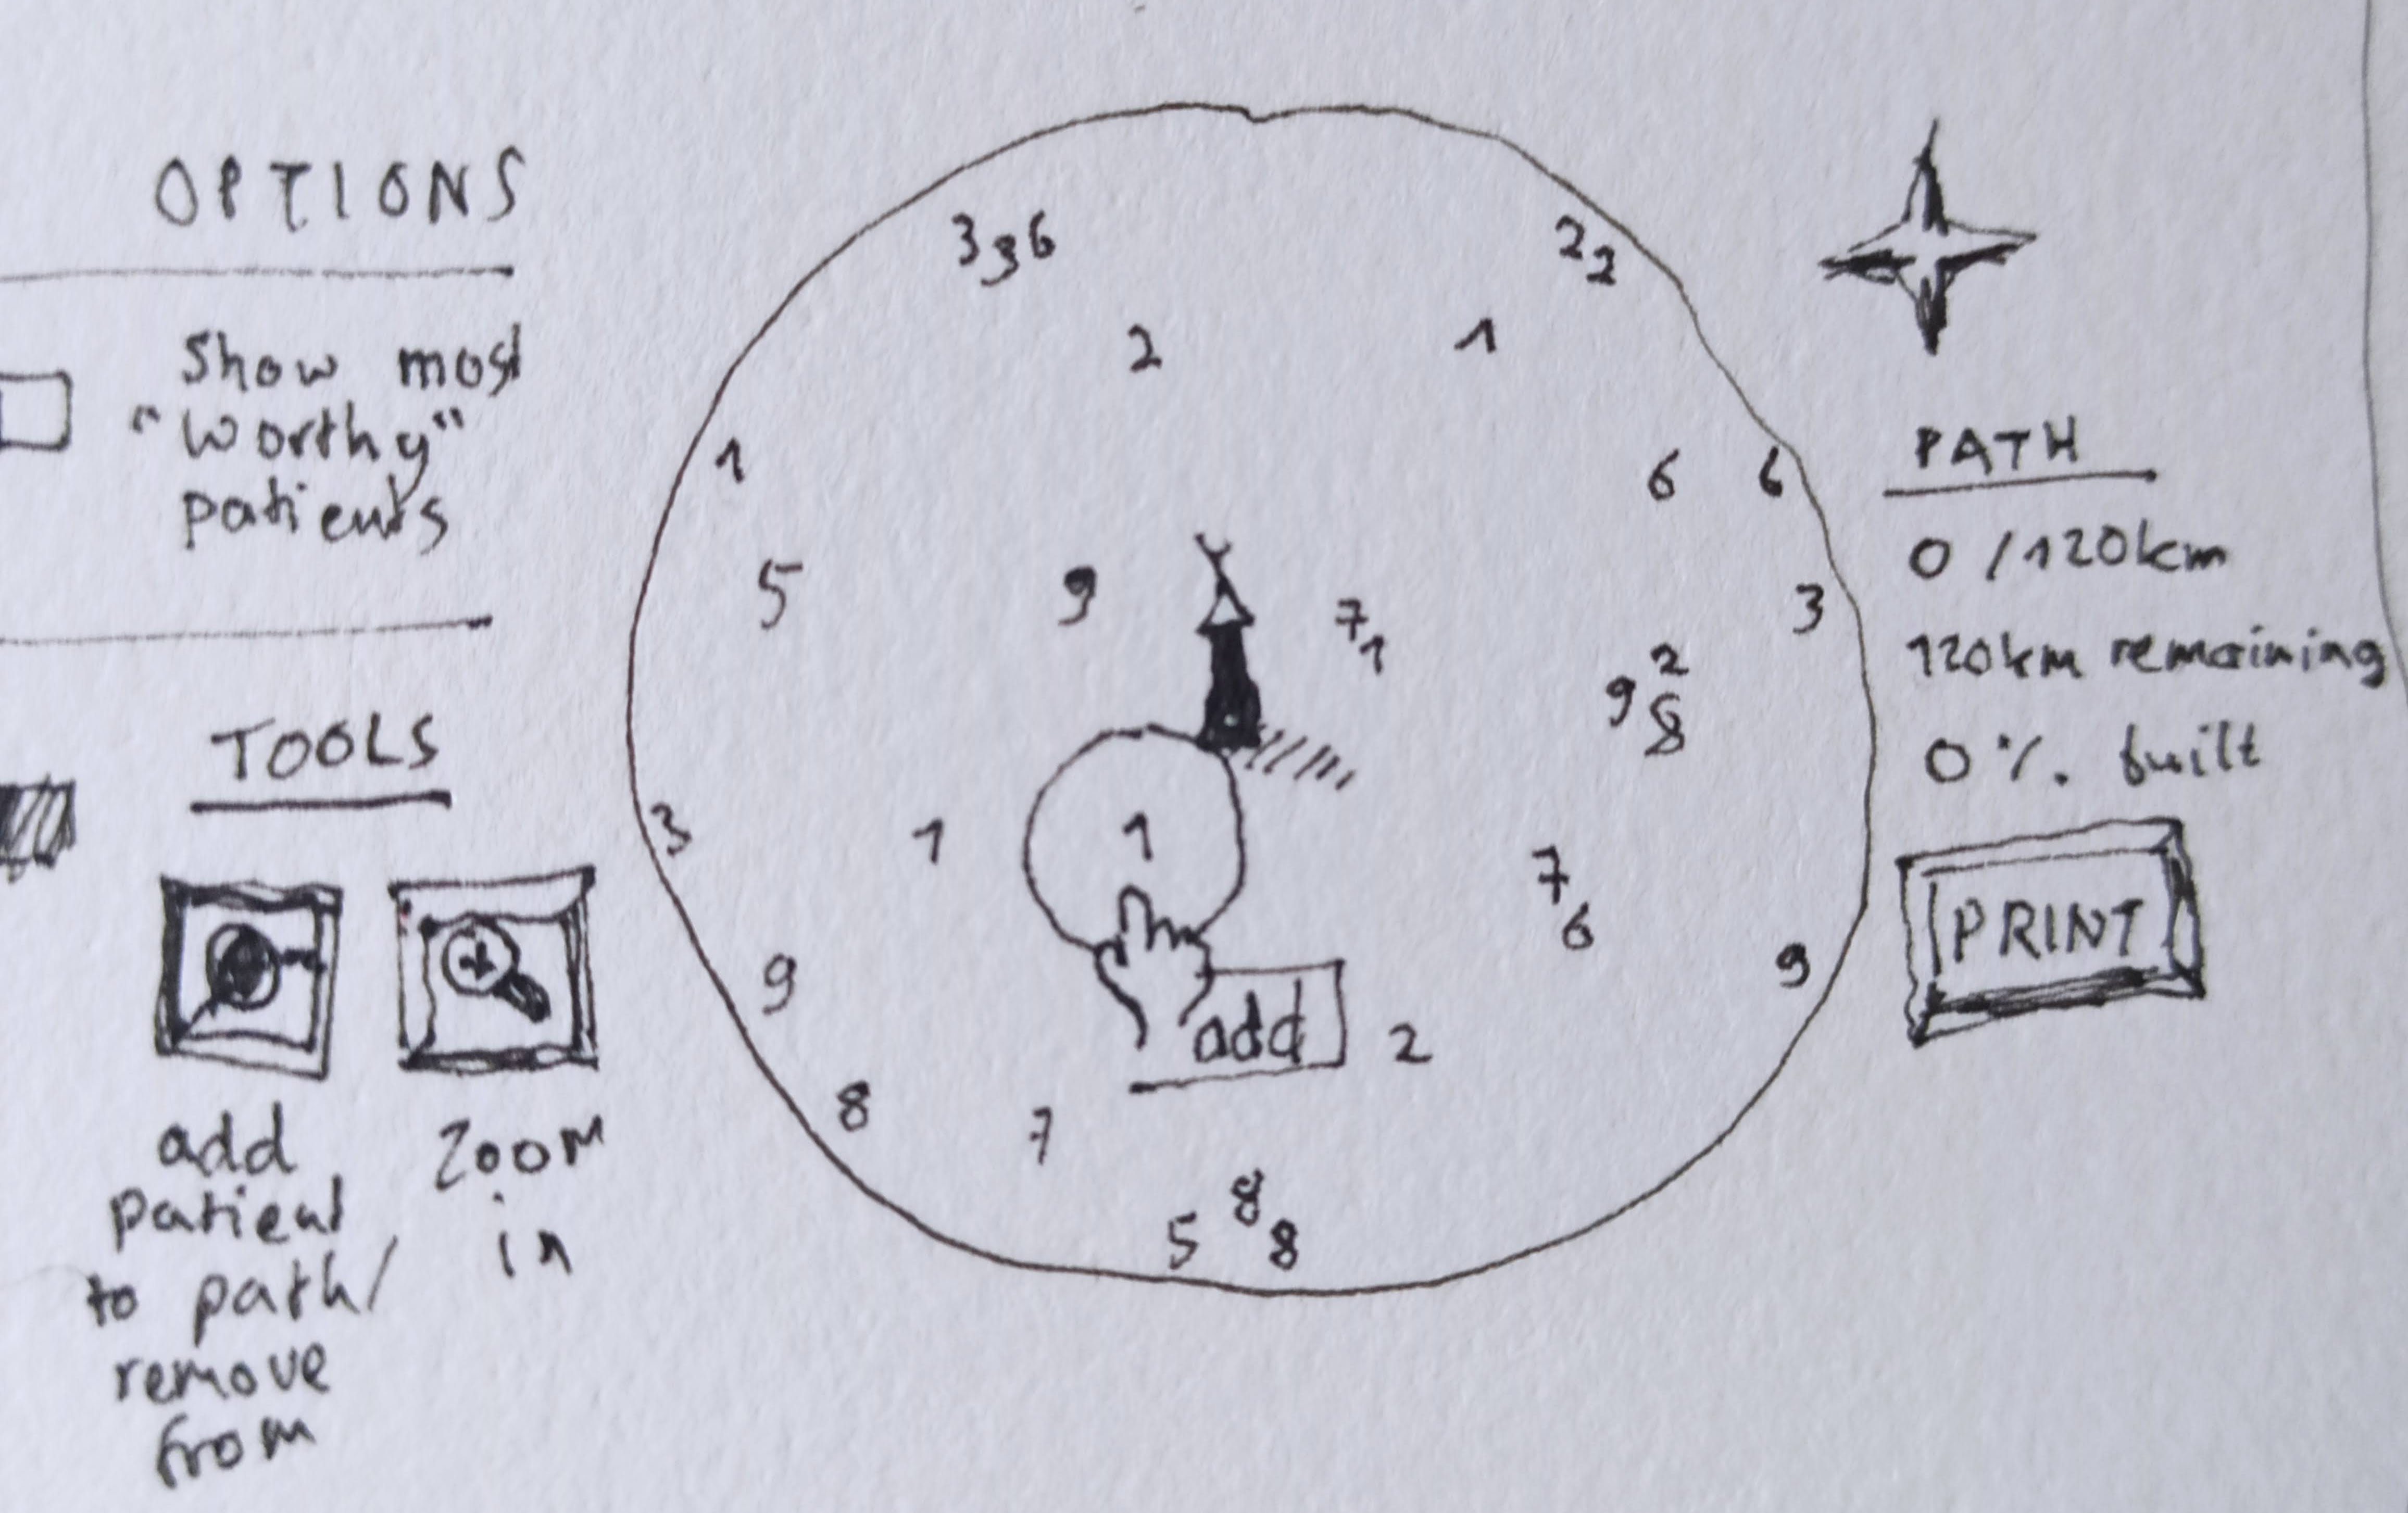 OPTIONS
Show most
"Worthy"
patients
TOOLS
add
patient
to path/
remove
from
zoom
in
3 3 6
2 2
2
1
1
6 6
5
9
7
1
3
2
9 8
3
1
1
7
6
9
9
add
2
8
7
8
5 8
PATH
0/120km
120km remaining
0%. built
PRINT